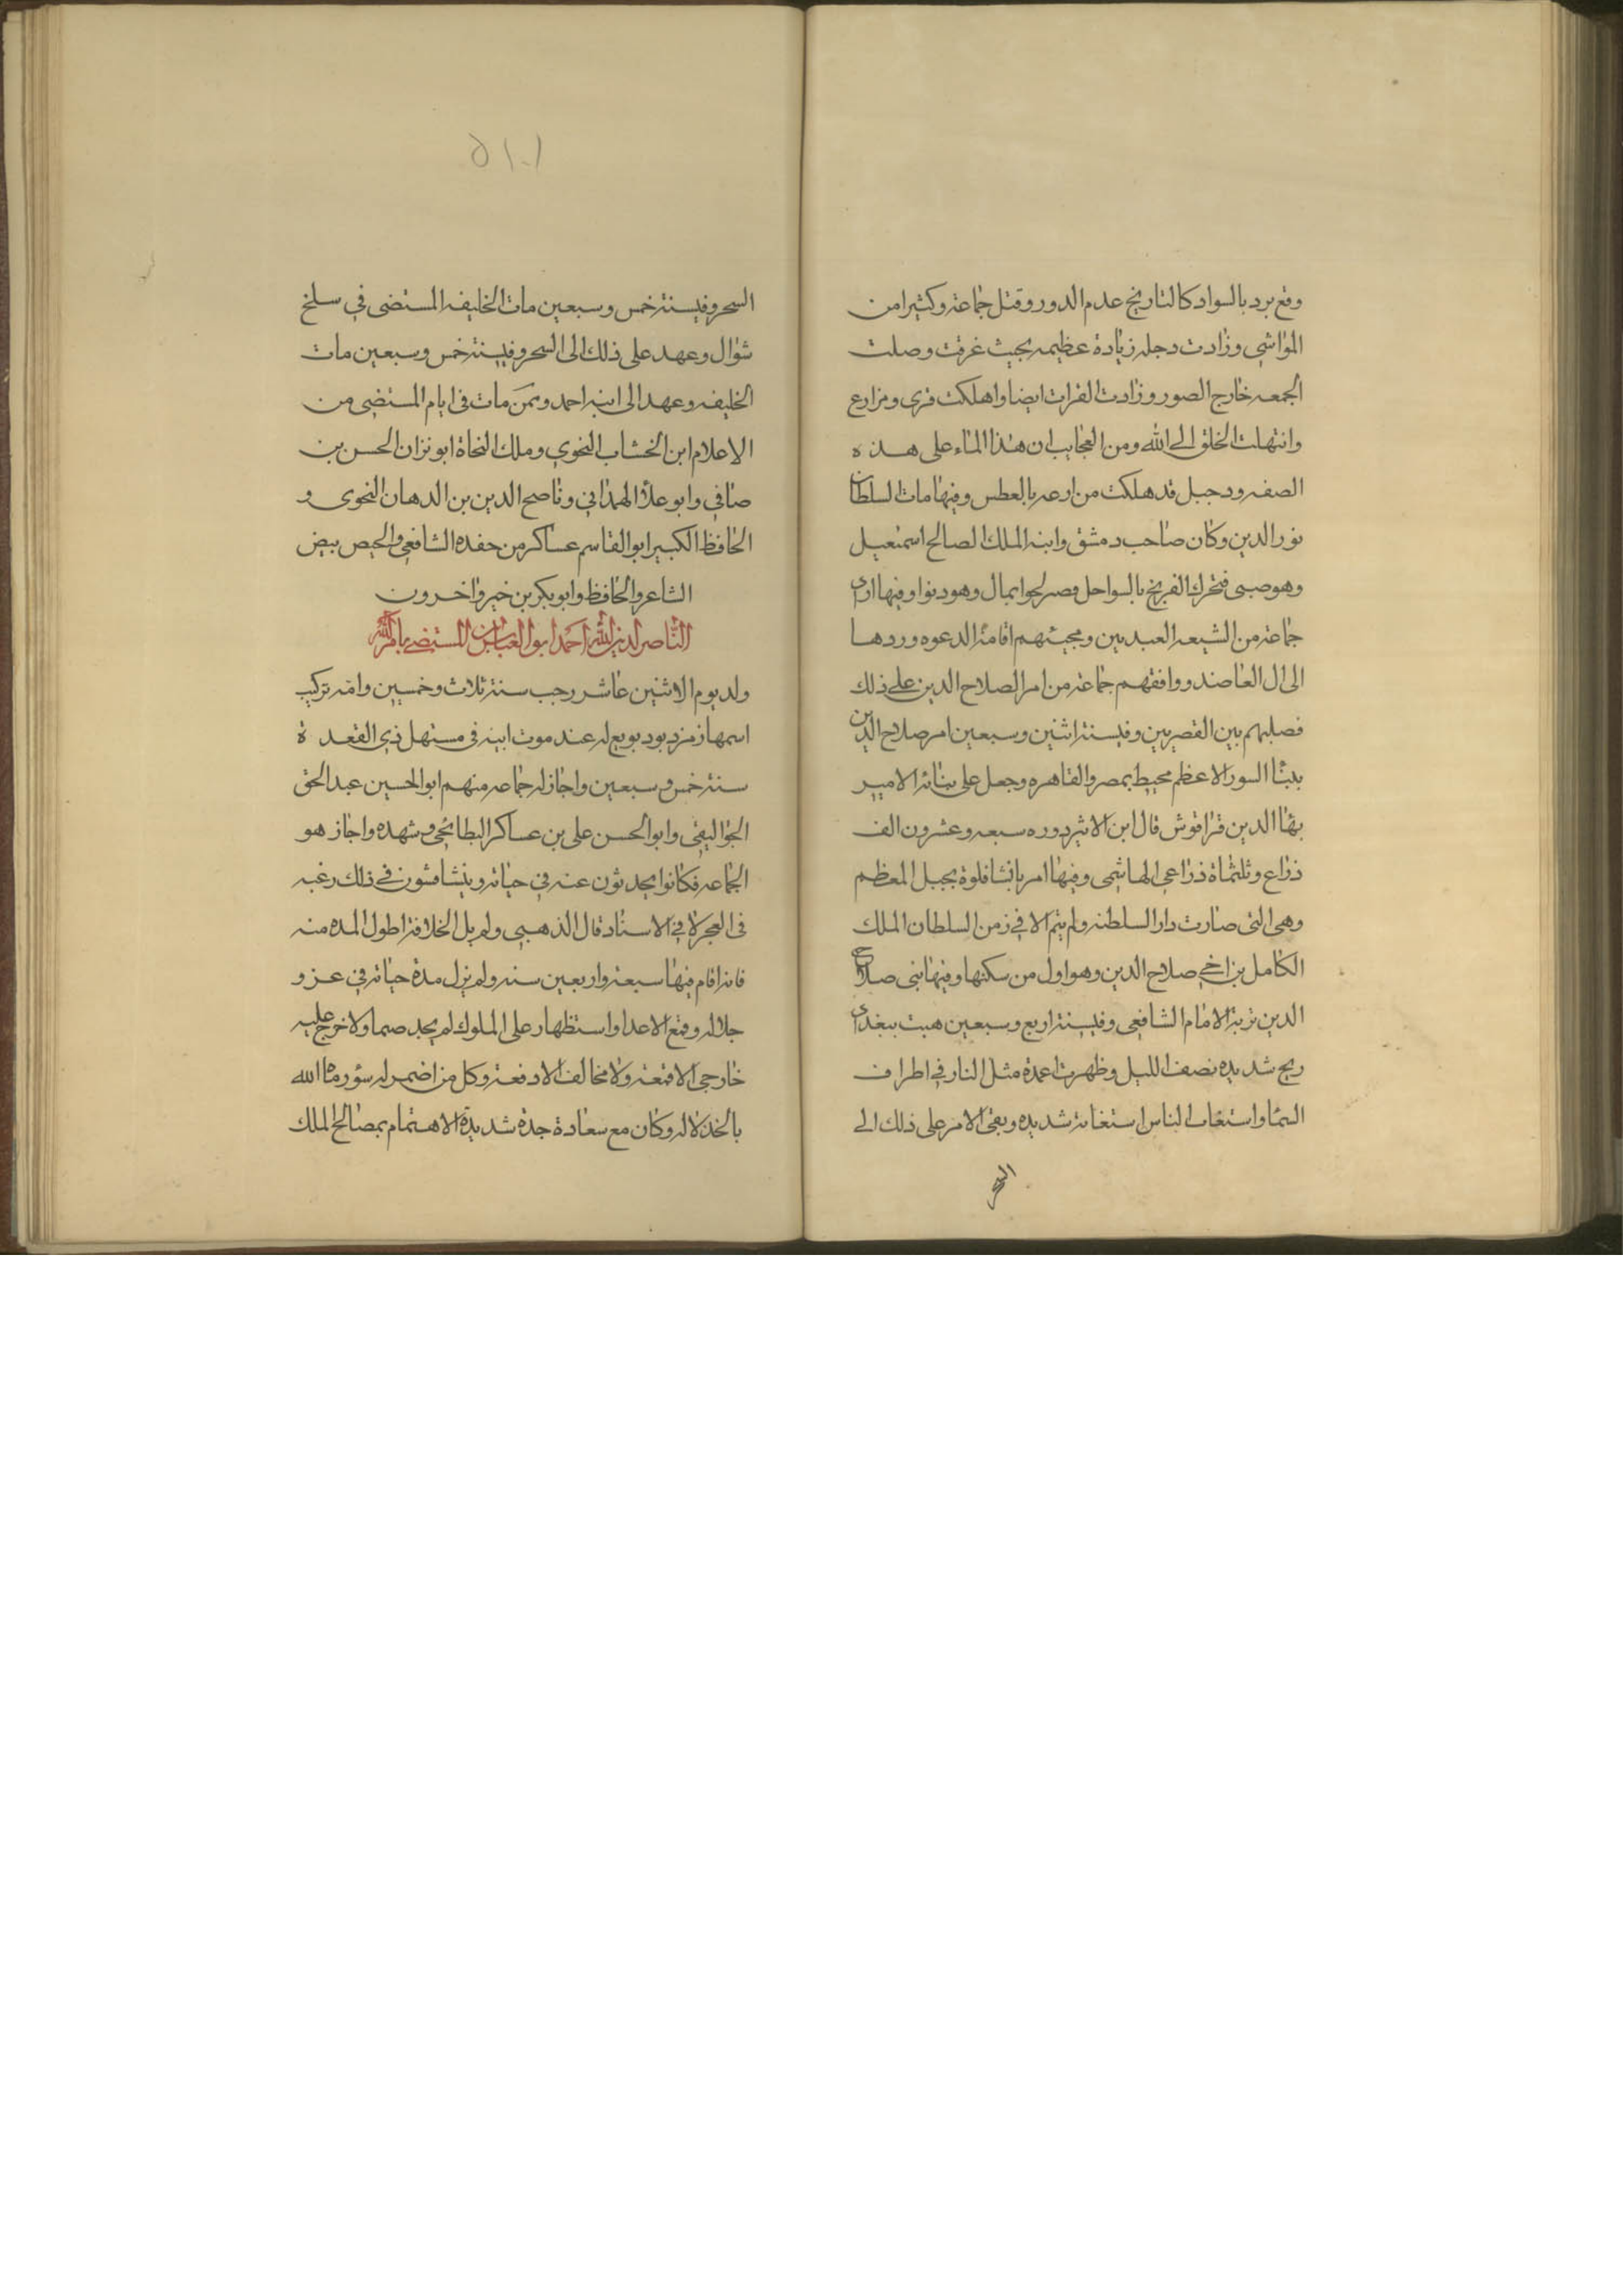 وقع برد بالسواد كالتاريخ عدم الدور وقتل جماعة وكثيرا من
المواشي وزادت دجلة زيادة عظيمه بحيث غرقت وصلت
الجمعه خارج الصور وزادت الفرات ايضا واهلكت قرى ومزارع
وانتهلت الخلق الى الله ومن العجايب ان هذا الماء على هذه
الصفه ودجيل قد هلكت من ارعه بالعطس وفيها مات السلطان
نور الدين وكان صاحب دمشق وابنه الملك الصالح اسمعيل
وهو صبى فتحرك الفرنج بالسواحل فصلحوا بمال وهودنوا وفيها اراد
جماعة من الشيعه العبديين ومحبتهم اقامة الدعوه وردها
الى ال العاضد ووافقهم جماعة من امر الصلاح الدين على ذلك
فصلبهم بين القصرين وفي سنة اثنين وسبعين امر صلاح الدين
ببنا السور الاعظم محيط بمصر والقاهره وجعل على بنائه الامير
بها الدين قراقوش قال ابن الاثير دوره سبعه وعشرون الف
ذراع وثلثماة ذراعي الهاشمى وفيها امر بانشا قلوة بجبل المعظم
وهى التى صارت دار السلطنه ولم يتم الا في زمن السلطان الملك
الكامل بن اخي صلاح الدين وهو اول من سكنها وفيها بنى صلاح
الدين تربة الامام الشافعى وفي سنة اربع وسبعين هبت ببغداد
ريح شديده نصف الليل وظهرت اعمدة مثل النار في اطراف
السما واستغاث الناس استغاثة شديده وبقى الامر على ذلك الى
السحر
١٠١٥
السحر وفي سنة خمس وسبعين مات الخليفه المستضى في سلخ
شوال وعهد على ذلك الى السحر وفي سنة خمس وسبعين مات
الخليفه وعهد الى ابنه احمد وممن مات فى ايام المستضى من
الاعلام ابن الخشاب النحوي وملك النحاة ابو نزان الحسن بن
صافي وابو علا الهمداني وناصح الدين بن الدهان النحوى و
الحافظ الكبير ابو القاسم عساكر من حفده الشافعي والحيص بيض
الشاعر والحافظ وابو بكر بن خير واخرون
الناصر لدين الله احمد ابو العباس بن المستضى بامر الله
ولد يوم الاثنين عاشر رجب سنة ثلاث وخمسين وامه تركيه
اسمها زمزد بود بويع له عند موت ابيه فى مستهل ذي القعدة
سنة خمس وسبعين واجاز له جماعه منهم ابو الحسين عبد الحق
الجواليقى وابو الحسن على بن عساكر البطائحى وشهده واجاز هو
الجماعه فكانوا يحدثون عنه في حياته ويتشافسون في ذلك رغبه
فى العجر لا في الاسناد قال الذهبى ولم يل الخلافة اطول المده منه
فانه اقام فيها سبعة واربعين سنه ولم يزل مدة حياته في عز و
جلاله وقمع الاعدا واستظهار على الملوك لم يجد صما ولا خرج عليه
خارجى الا قمعه ولا مخالف الا دفعة وكل من اضمر له سؤ رماه الله
بالخذلاله وكان مع سعادة جده شديدة الاهتمام بمصالح الملك